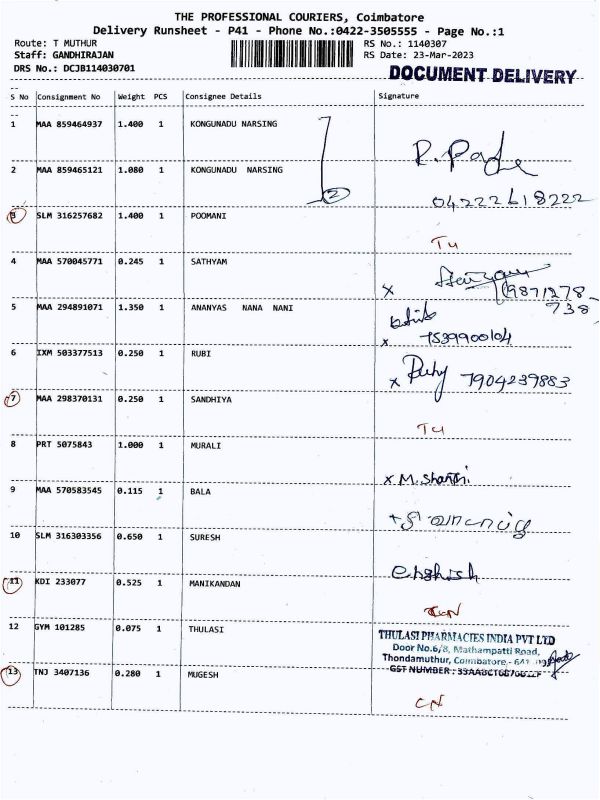 THE PROFESSIONAL COURIERS, Coimbatore
Delivery Runsheet - P41 - Phone No.:0422-3505555 - Page No.:1
Route: T MUTHUR
RS No.: 1140307
Staff: GANDHIRAJAN
RS Date: 23-Mar-2023
DRS No.: DCJB114030701
DOCUMENT DELIVERY
S No Consignment No Weight PCS Consignee Details Signature
1 MAA 859464937 1.400 1 KONGUNADU NARSING
R.
2 MAA 859465121 1.080 1 KONGUNADU NARSING
2
04222618222
3 SLM 316257682 1.400 1 POOMANI
TU
4 MAA 570045771 0.245 1 SATHYAM
x
9871278
738
5 MAA 294891071 1.350 1 ANANYAS NANA NANI
x 7539900104
6 IXM 503377513 0.250 1 RUBI
x Ruby 7904239883
7 MAA 298370131 0.250 1 SANDHIYA
TU
8 PRT 5075843 1.000 1 MURALI
x M. Shanthi
9 MAA 570583545 0.115 1 BALA
10 SLM 316303356 0.650 1 SURESH
11 KDI 233077 0.525 1 MANIKANDAN
12 GYM 101285 0.075 1 THULASI
THULASI PHARMACIES INDIA PVT LTD
Door No.6/8, Mathampatti Road,
Thondamuthur, Coimbatore - 641
GST NUMBER :
13 TNJ 3407136 0.280 1 MUGESH
CN